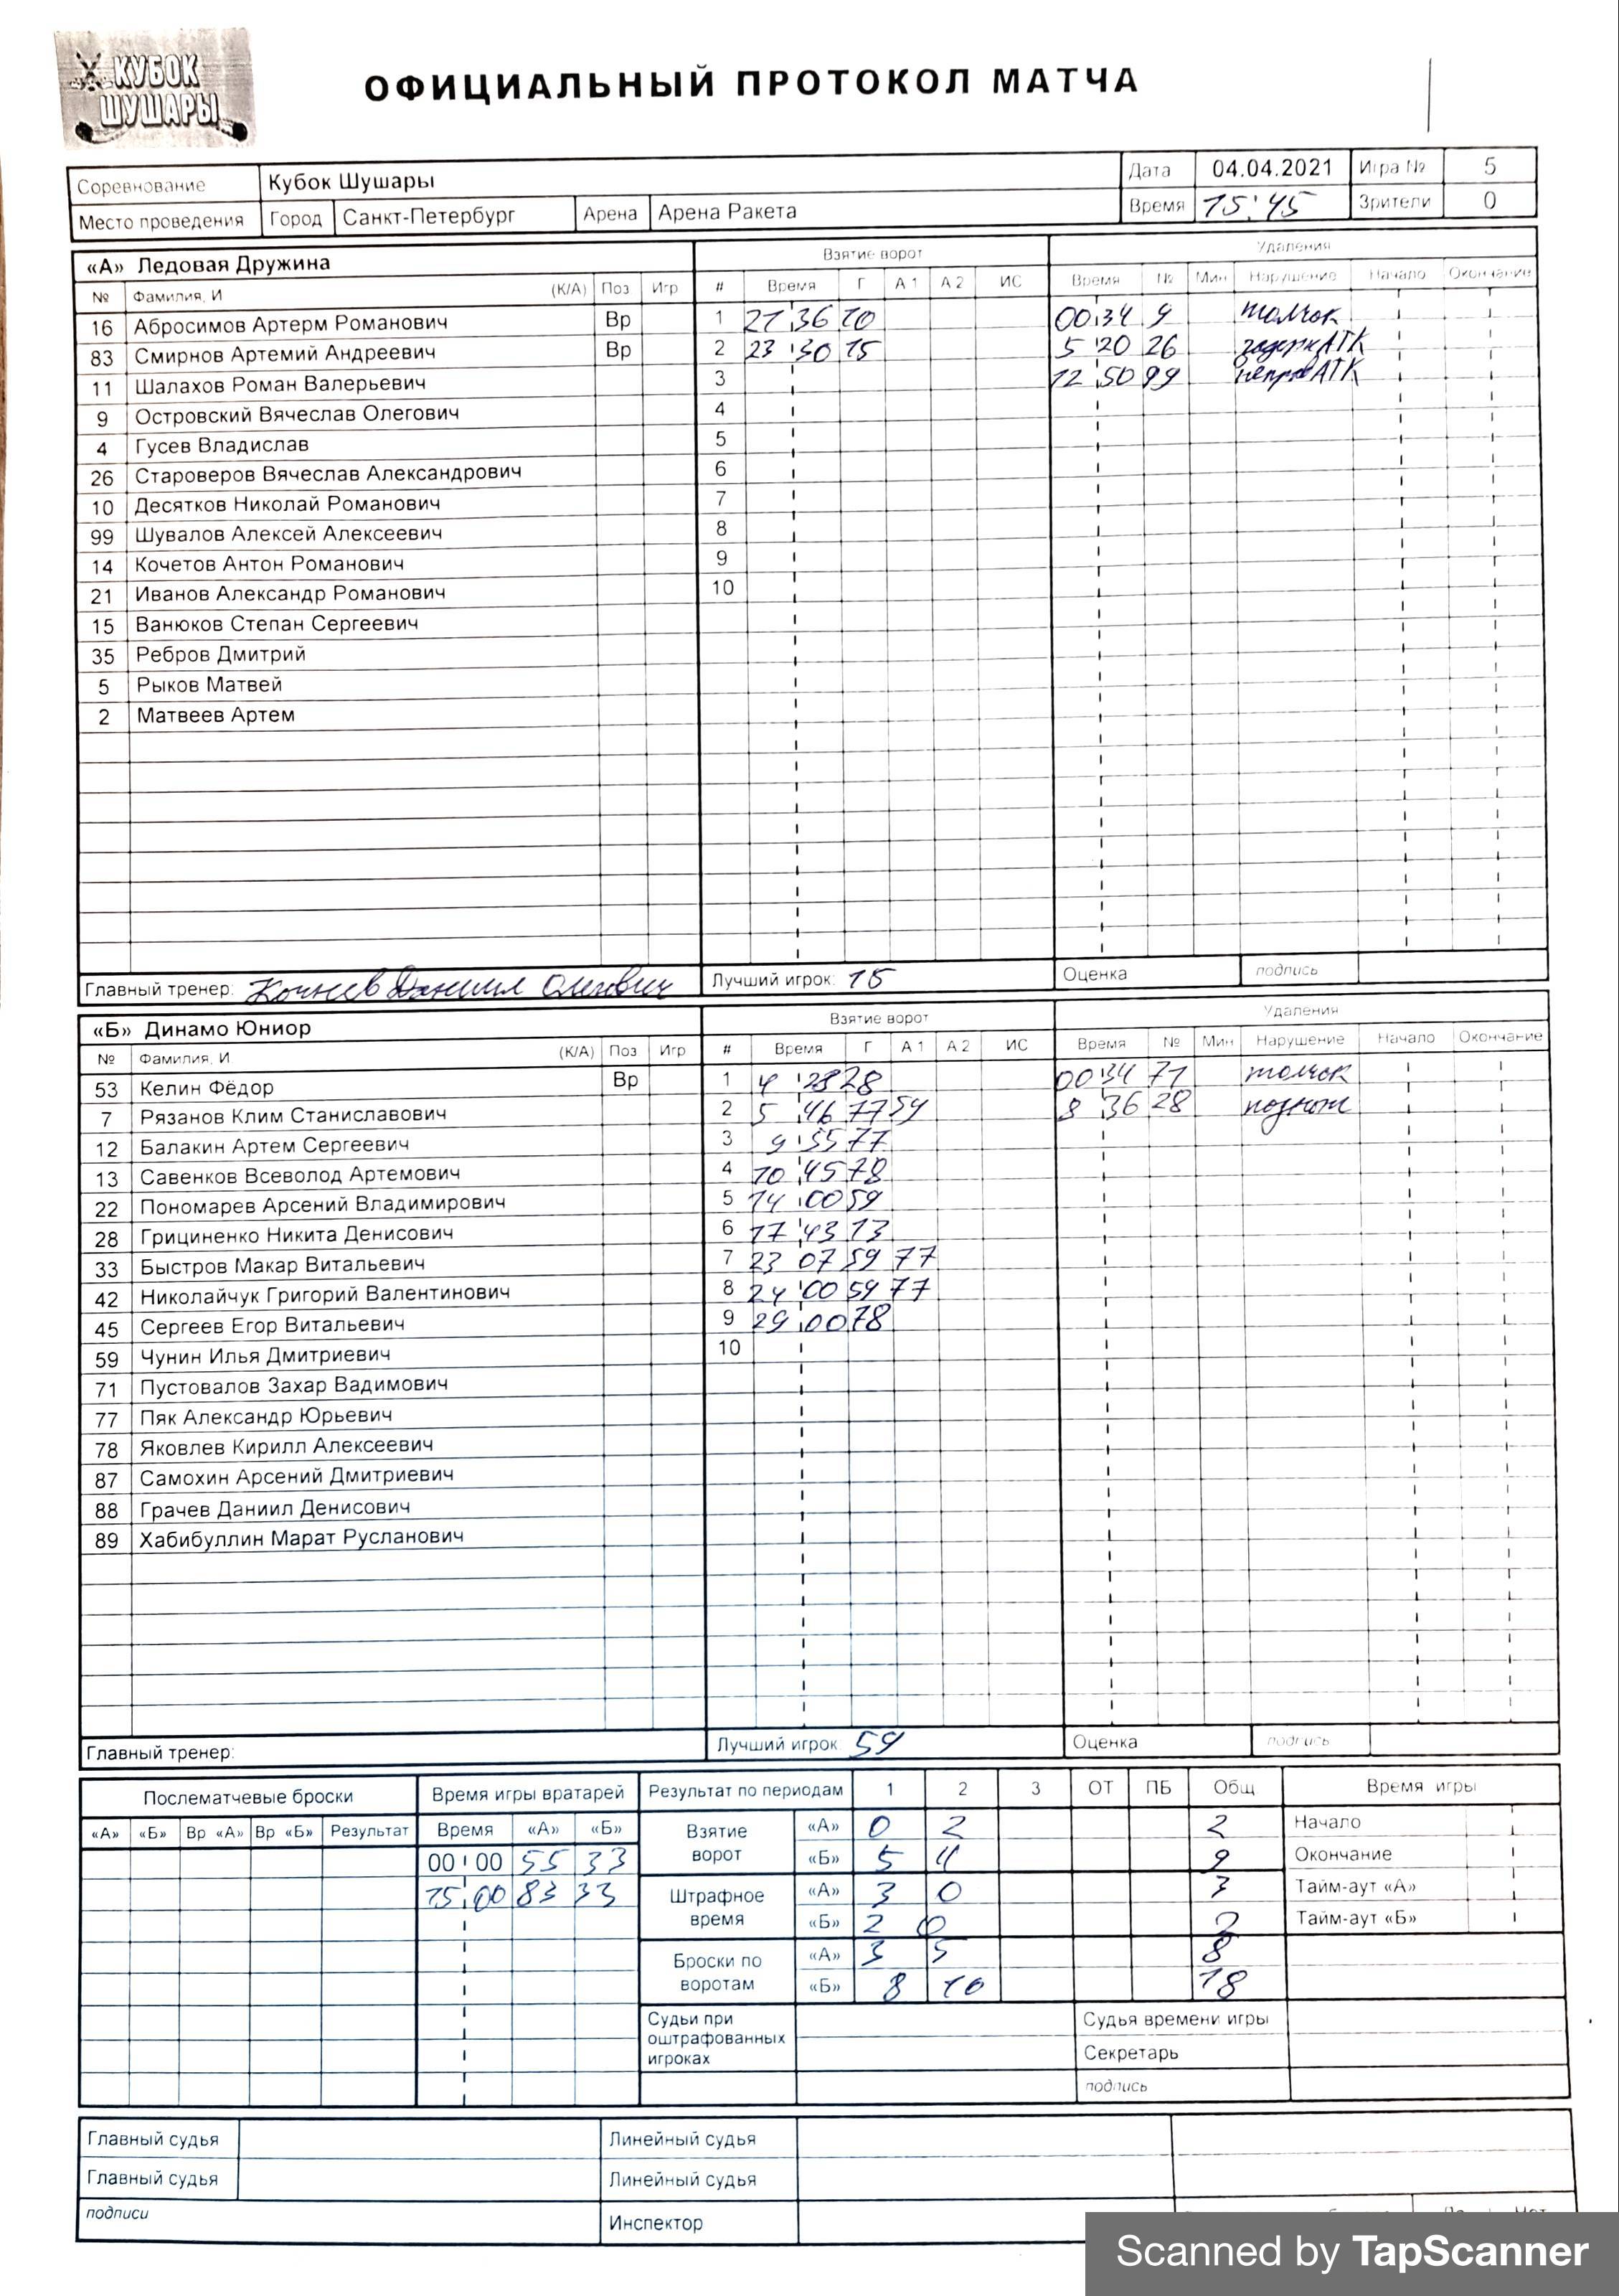 КУБОК
ШУШАРЫ
ОФИЦИАЛЬНЫЙ ПРОТОКОЛ МАТЧА
Соревнование Кубок Шушары Дата 04.04.2021 Игра № 5
Место проведения Город Санкт-Петербург Арена Арена Ракета Время 15:45 Зрители 0
«А» Ледовая Дружина Взятие ворот Удаления
№ Фамилия, И (К/А) Поз Игр # Время Г А 1 А 2 ИС Время № Мин Нарушение Начало Окончание
16 Абросимов Артерм Романович Вр 1 21 36 10 00 34 9 толчок
83 Смирнов Артемий Андреевич Вр 2 23 30 15 5 20 26 задерж АТК
11 Шалахов Роман Валерьевич 3 12 50 99 АТК
9 Островский Вячеслав Олегович 4
4 Гусев Владислав 5
26 Староверов Вячеслав Александрович 6
10 Десятков Николай Романович 7
99 Шувалов Алексей Алексеевич 8
14 Кочетов Антон Романович 9
21 Иванов Александр Романович 10
15 Ванюков Степан Сергеевич
35 Ребров Дмитрий
5 Рыков Матвей
2 Матвеев Артем
Главный тренер: Даниил Олегович Лучший игрок: 15 Оценка подпись
«Б» Динамо Юниор Взятие ворот Удаления
№ Фамилия, И (К/А) Поз Игр # Время Г А 1 А 2 ИС Время № Мин Нарушение Начало Окончание
53 Келин Фёдор Вр 1 4 28 28 00 34 71 толчок
7 Рязанов Клим Станиславович 2 5 46 77 59 8 36 28 поднож
12 Балакин Артем Сергеевич 3 9 55 77
13 Савенков Всеволод Артемович 4 10 45 78
22 Пономарев Арсений Владимирович 5 14 00 59
28 Грициненко Никита Денисович 6 17 43 13
33 Быстров Макар Витальевич 7 23 07 59 77
42 Николайчук Григорий Валентинович 8 24 00 59 77
45 Сергеев Егор Витальевич 9 29 00 78
59 Чунин Илья Дмитриевич 10
71 Пустовалов Захар Вадимович
77 Пяк Александр Юрьевич
78 Яковлев Кирилл Алексеевич
87 Самохин Арсений Дмитриевич
88 Грачев Даниил Денисович
89 Хабибуллин Марат Русланович
Главный тренер: Лучший игрок: 59 Оценка подпись
Послематчевые броски Время игры вратарей Результат по периодам 1 2 3 ОТ ПБ Общ Время игры
«А» «Б» Вр «А» Вр «Б» Результат Время «А» «Б» Взятие ворот «А» 0 2 2 Начало
00 00 55 33 «Б» 5 4 9 Окончание
15 00 83 33 Штрафное время «А» 3 0 3 Тайм-аут «А»
«Б» 2 0 2 Тайм-аут «Б»
Броски по воротам «А» 3 5 8
«Б» 8 10 18
Судьи при оштрафованных игроках Судья времени игры
Секретарь
подпись
Главный судья Линейный судья
Главный судья Линейный судья
подписи Инспектор
Scanned by TapScanner